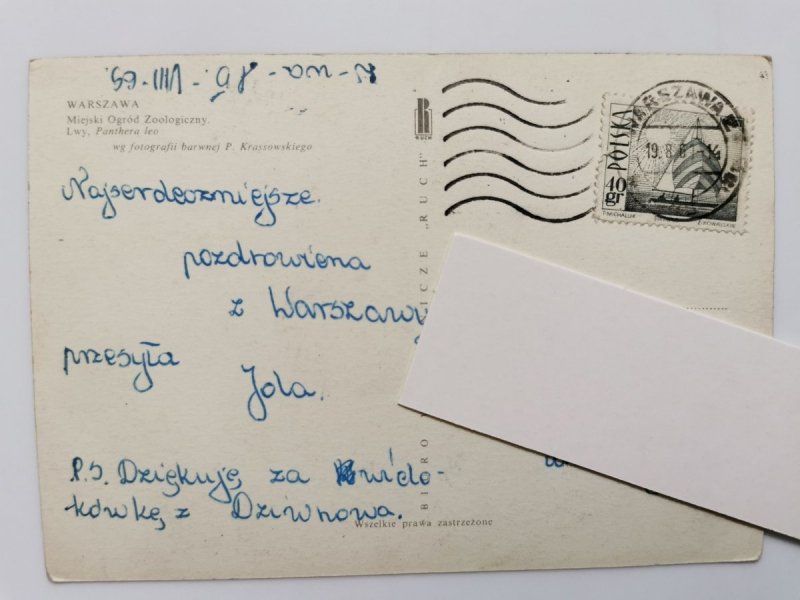 W-wa - VIII-69.
WARSZAWA
Miejski Ogród Zoologiczny.
Lwy, Panthera leo
wg fotografii barwnej P. Krassowskiego
Najserdeczniejsze
pozdrowiena
z Warszawy
przesyła
Jola.
P.S. Dziękuję za wido-
kówkę z Dziwnowa.
RUCH
BIURO
NICZE „RUCH"
Wszelkie prawa zastrzeżone
WARSZAWA
19.8.6
POLSKA
40 gr
T.MICHALUK